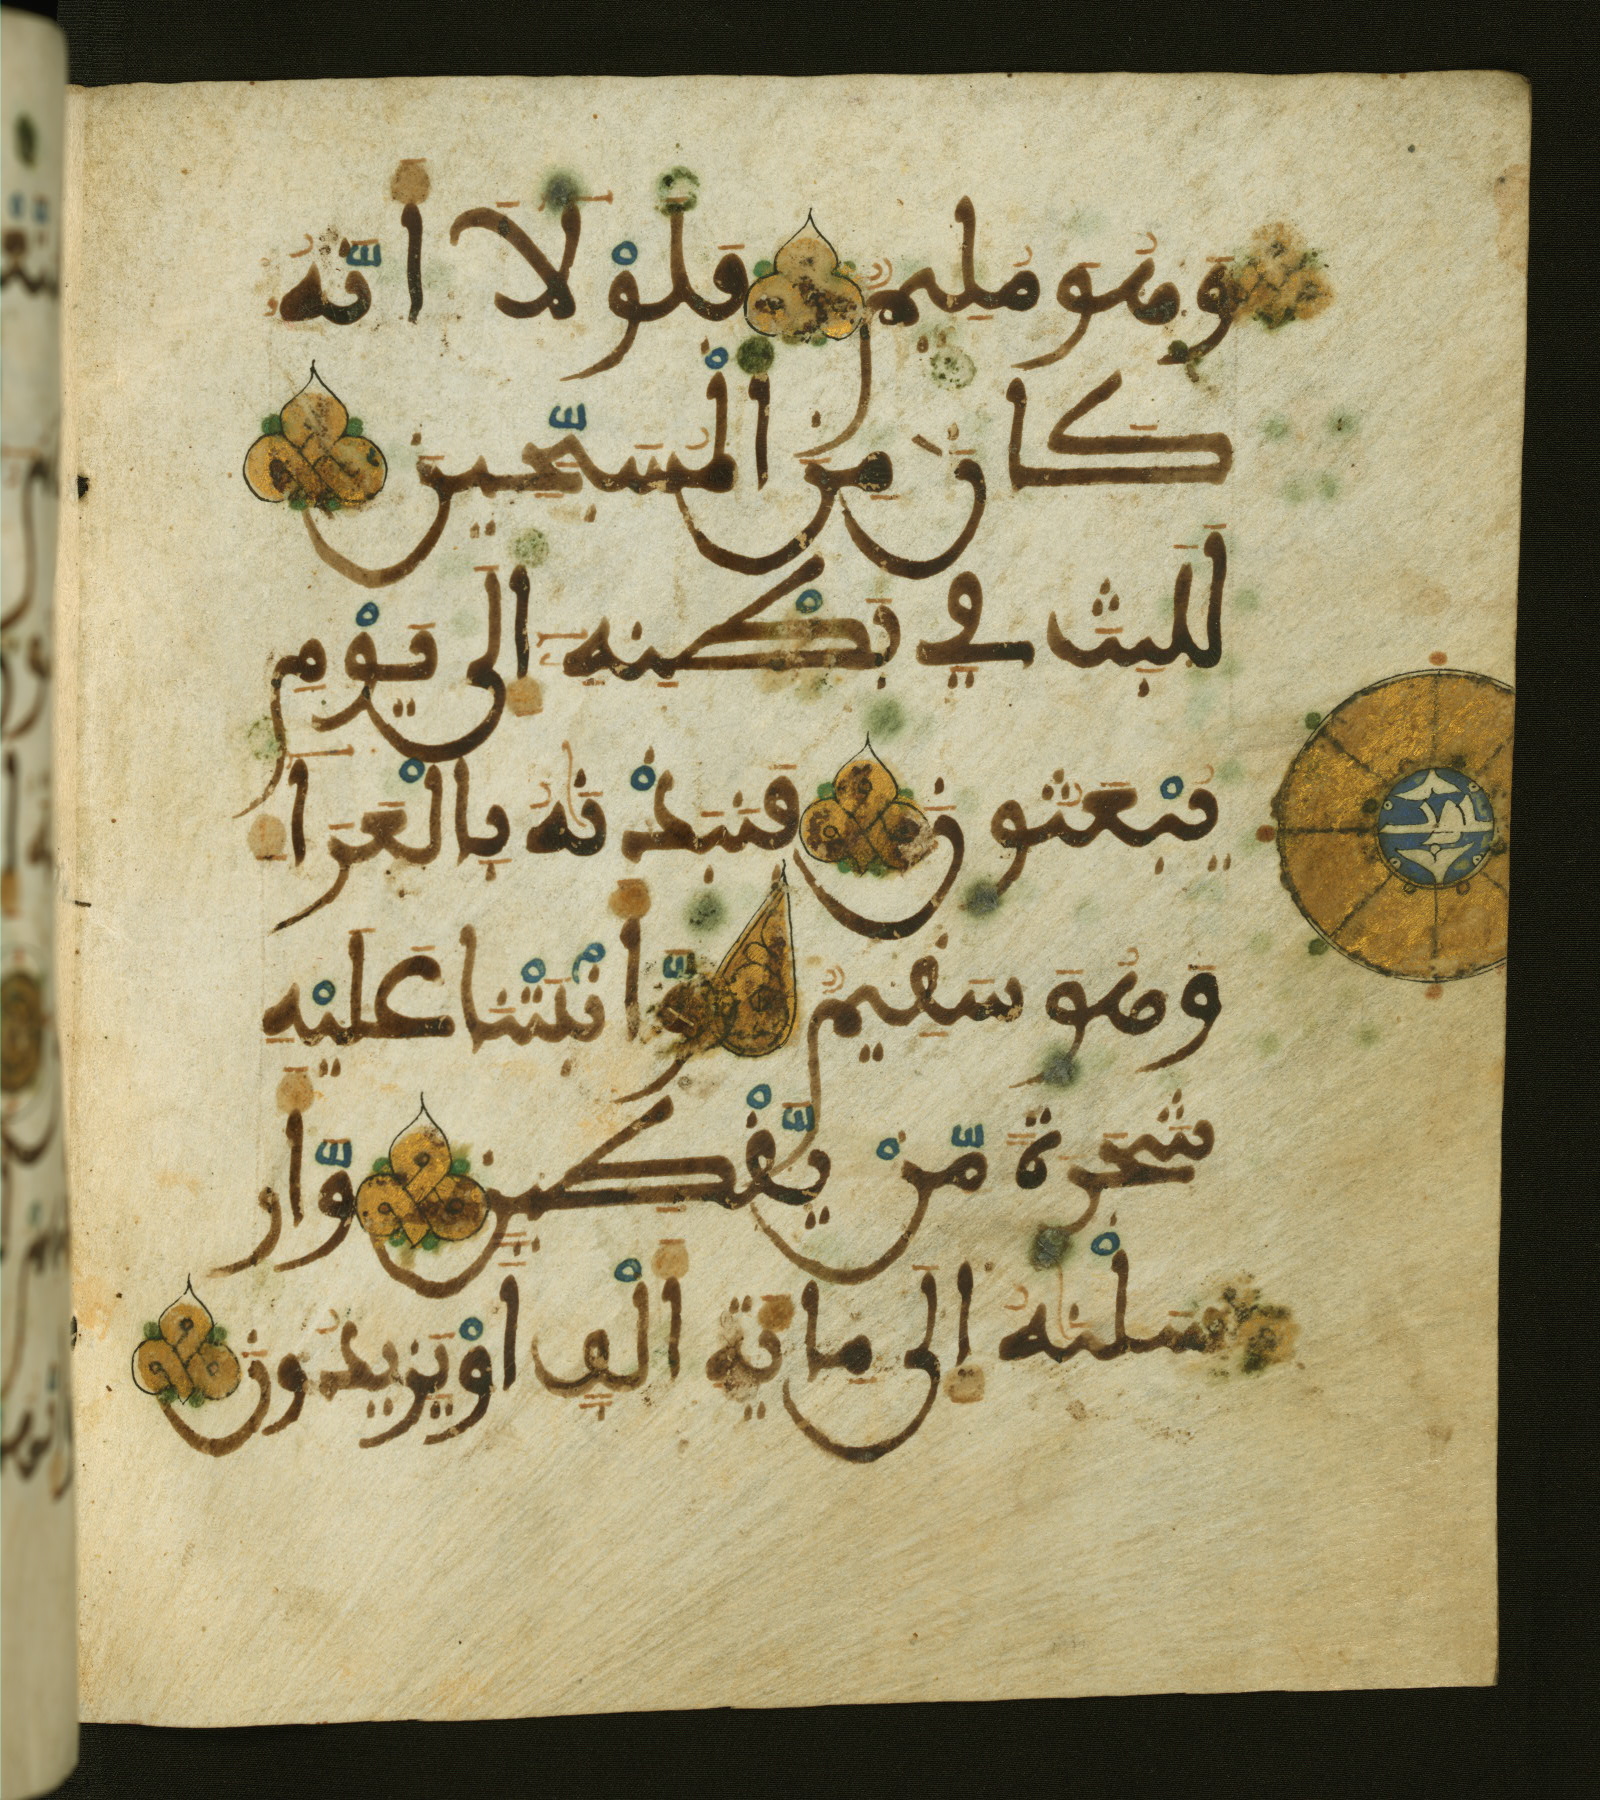 وَهُوَ مُلِيمٌ فَلَوْلَا أَنَّهُ
كَانَ مِنَ الْمُسَبِّحِينَ
لَلَبِثَ فِي بَطْنِهِ إِلَى يَوْمِ
يُبْعَثُونَ فَنَبَذْنَهُ بِالْعَرَا
وَهُوَ سَقِيمٌ وَّأَنْبَتْنَا عَلَيْهِ
شَجَرَةً مِّنْ يَّقْطِينٍ وَّأَر
سَلْنَهُ إِلَى مِائَةِ أَلْفٍ أَوْ يَزِيدُونَ